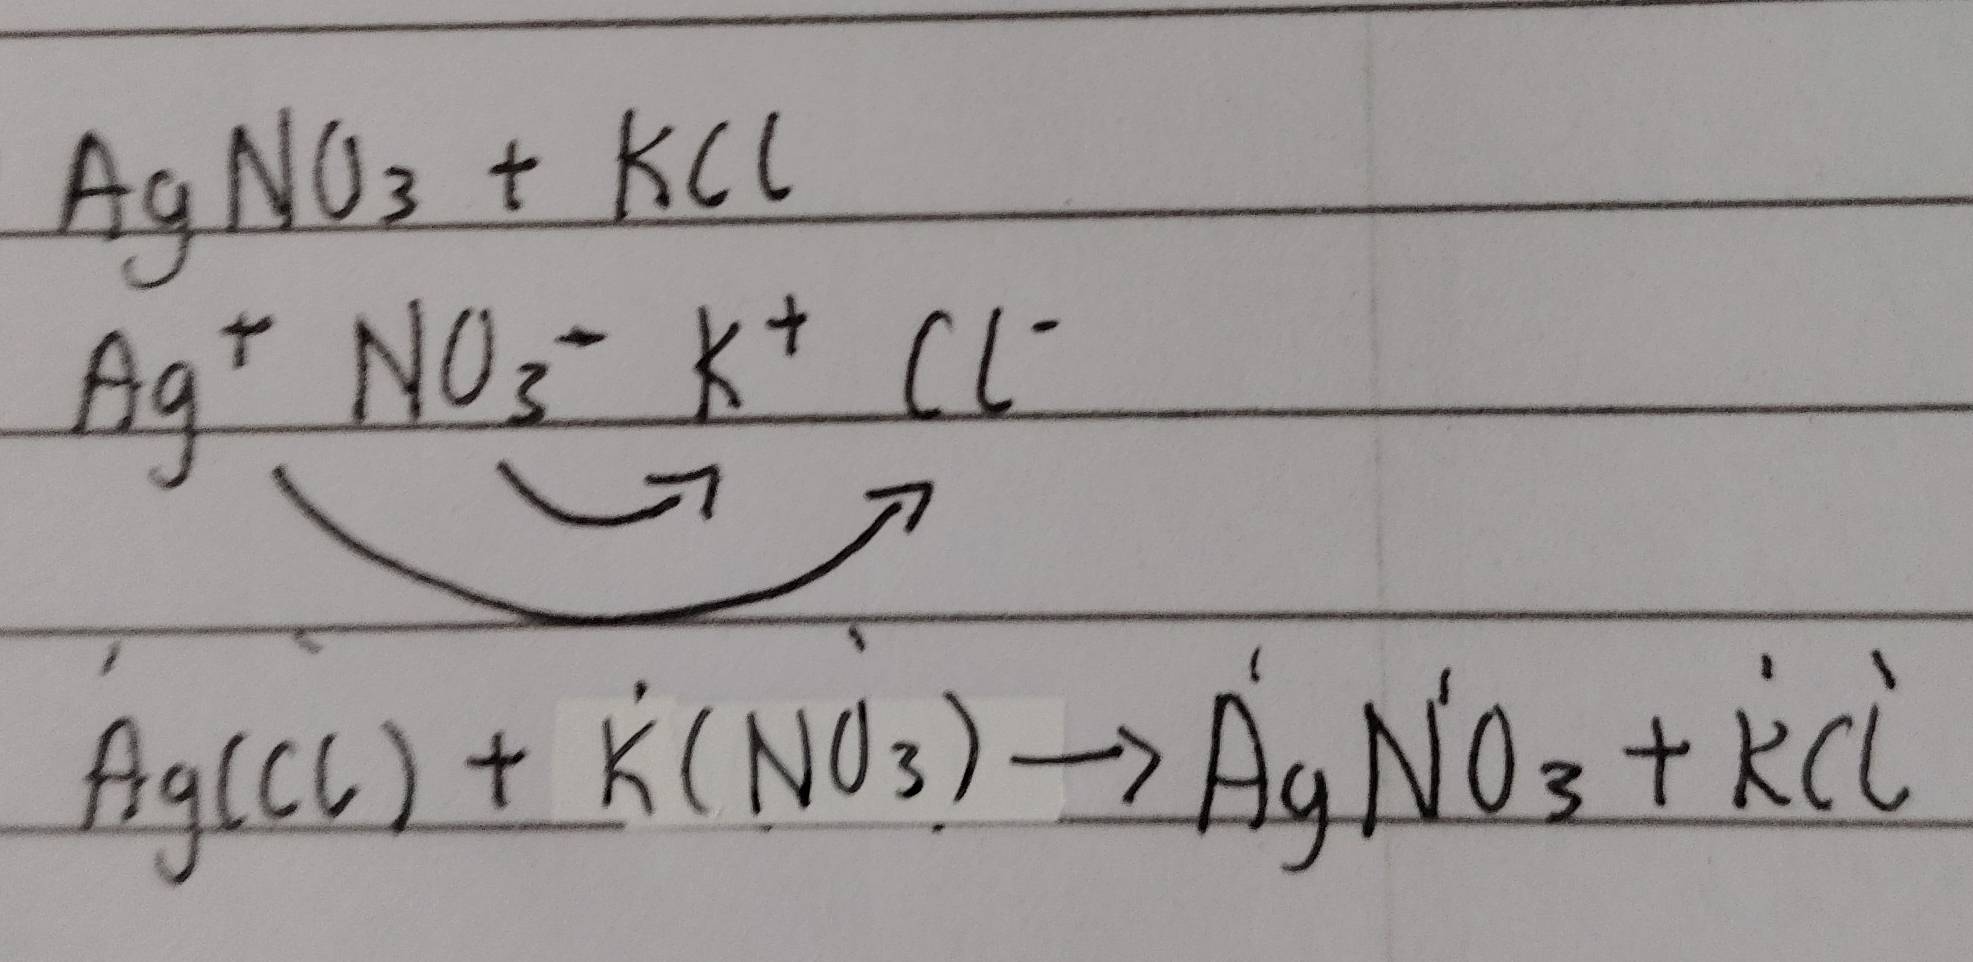 AgNO₃ + KCl
Ag⁺ NO₃⁻ K⁺ Cl⁻
Ag(Cl) + K(NO₃) → AgNO₃ + KCl